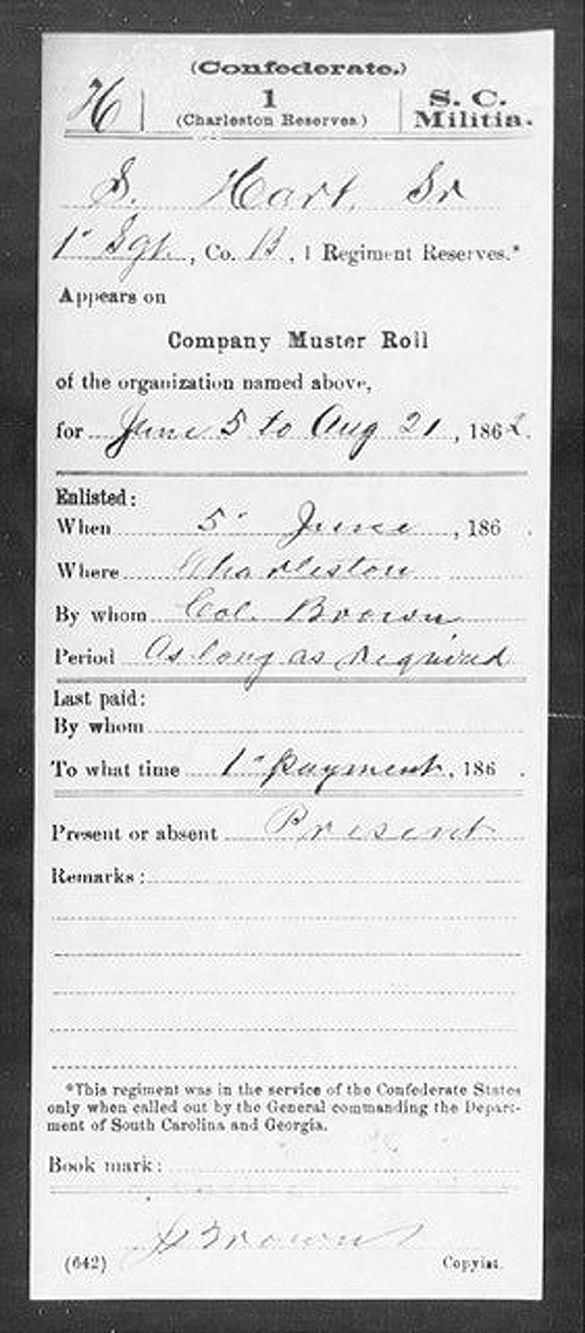 (Confederate.)
H | 1 | S. C.
(Charleston Reserves.) Militia.
S. Hart, Sr
1" Sgt., Co. B, 1 Regiment Reserves.*
Appears on
Company Muster Roll
of the organization named above,
for June 5 to Aug 21, 1862.
Enlisted:
When 5" June, 186 .
Where Charleston
By whom Col. Brown
Period As long as required
Last paid:
By whom
To what time 1" payment, 186 .
Present or absent Present
Remarks:
*This regiment was in the service of the Confederate States
only when called out by the General commanding the Depart-
ment of South Carolina and Georgia.
Book mark:
(642) Copyist.